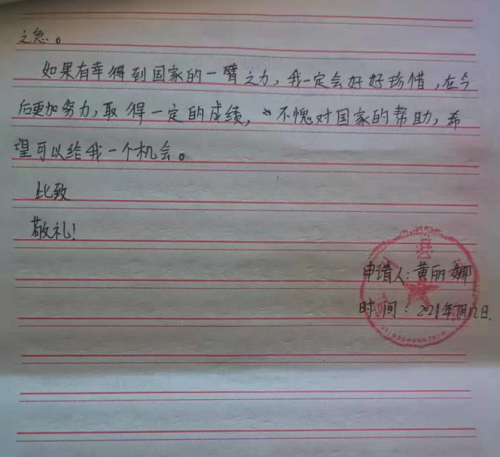 之急。
如果有幸得到国家的一臂之力,我一定会好好珍惜,在今
后更加努力,取得一定的成绩,不愧对国家的帮助,希
望可以给我一个机会。
此致
敬礼!
县
申请人:黄丽娜
时间:2021年 月12日.